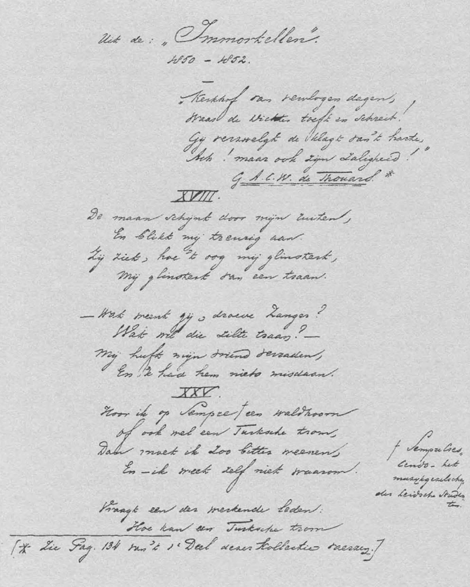 Uit de: „Immortellen".
1850 - 1852.
„Kerkhof van vervlogen dagen,
Waar de Dichter toeft en schreit!
Gy verzwelgt de klagt van 't harte,
Ach! maar ook zijn zaligheid!"
G. A. C. W. de Thouars *
XVIII.
De maan schijnt door mijn ruiten,
En blikt mij treurig aan.
Zij ziet, hoe 't oog mij glinstert,
Mij glinstert van een traan.
— Wat weent gij, droeve Zanger?
Wat wil die zilte traan? —
Mij heeft mijn vriend verraden,
En 'k heb hem niets misdaan.
XXV.
Hoor ik op Sempre† een waldhoorn
of ook wel een Turksche trom,
Dan moet ik zoo bitter weenen,
En — ik weet zelf niet waarom.
Vraagt een der werkende leden:
Hoe kan een Turksche trom
† Sempre
het
muzijkgezelschap
der Leidsche Studen-
ten.
[* Zie Pag. 134 van 't 1e Deel dezer Kollectie